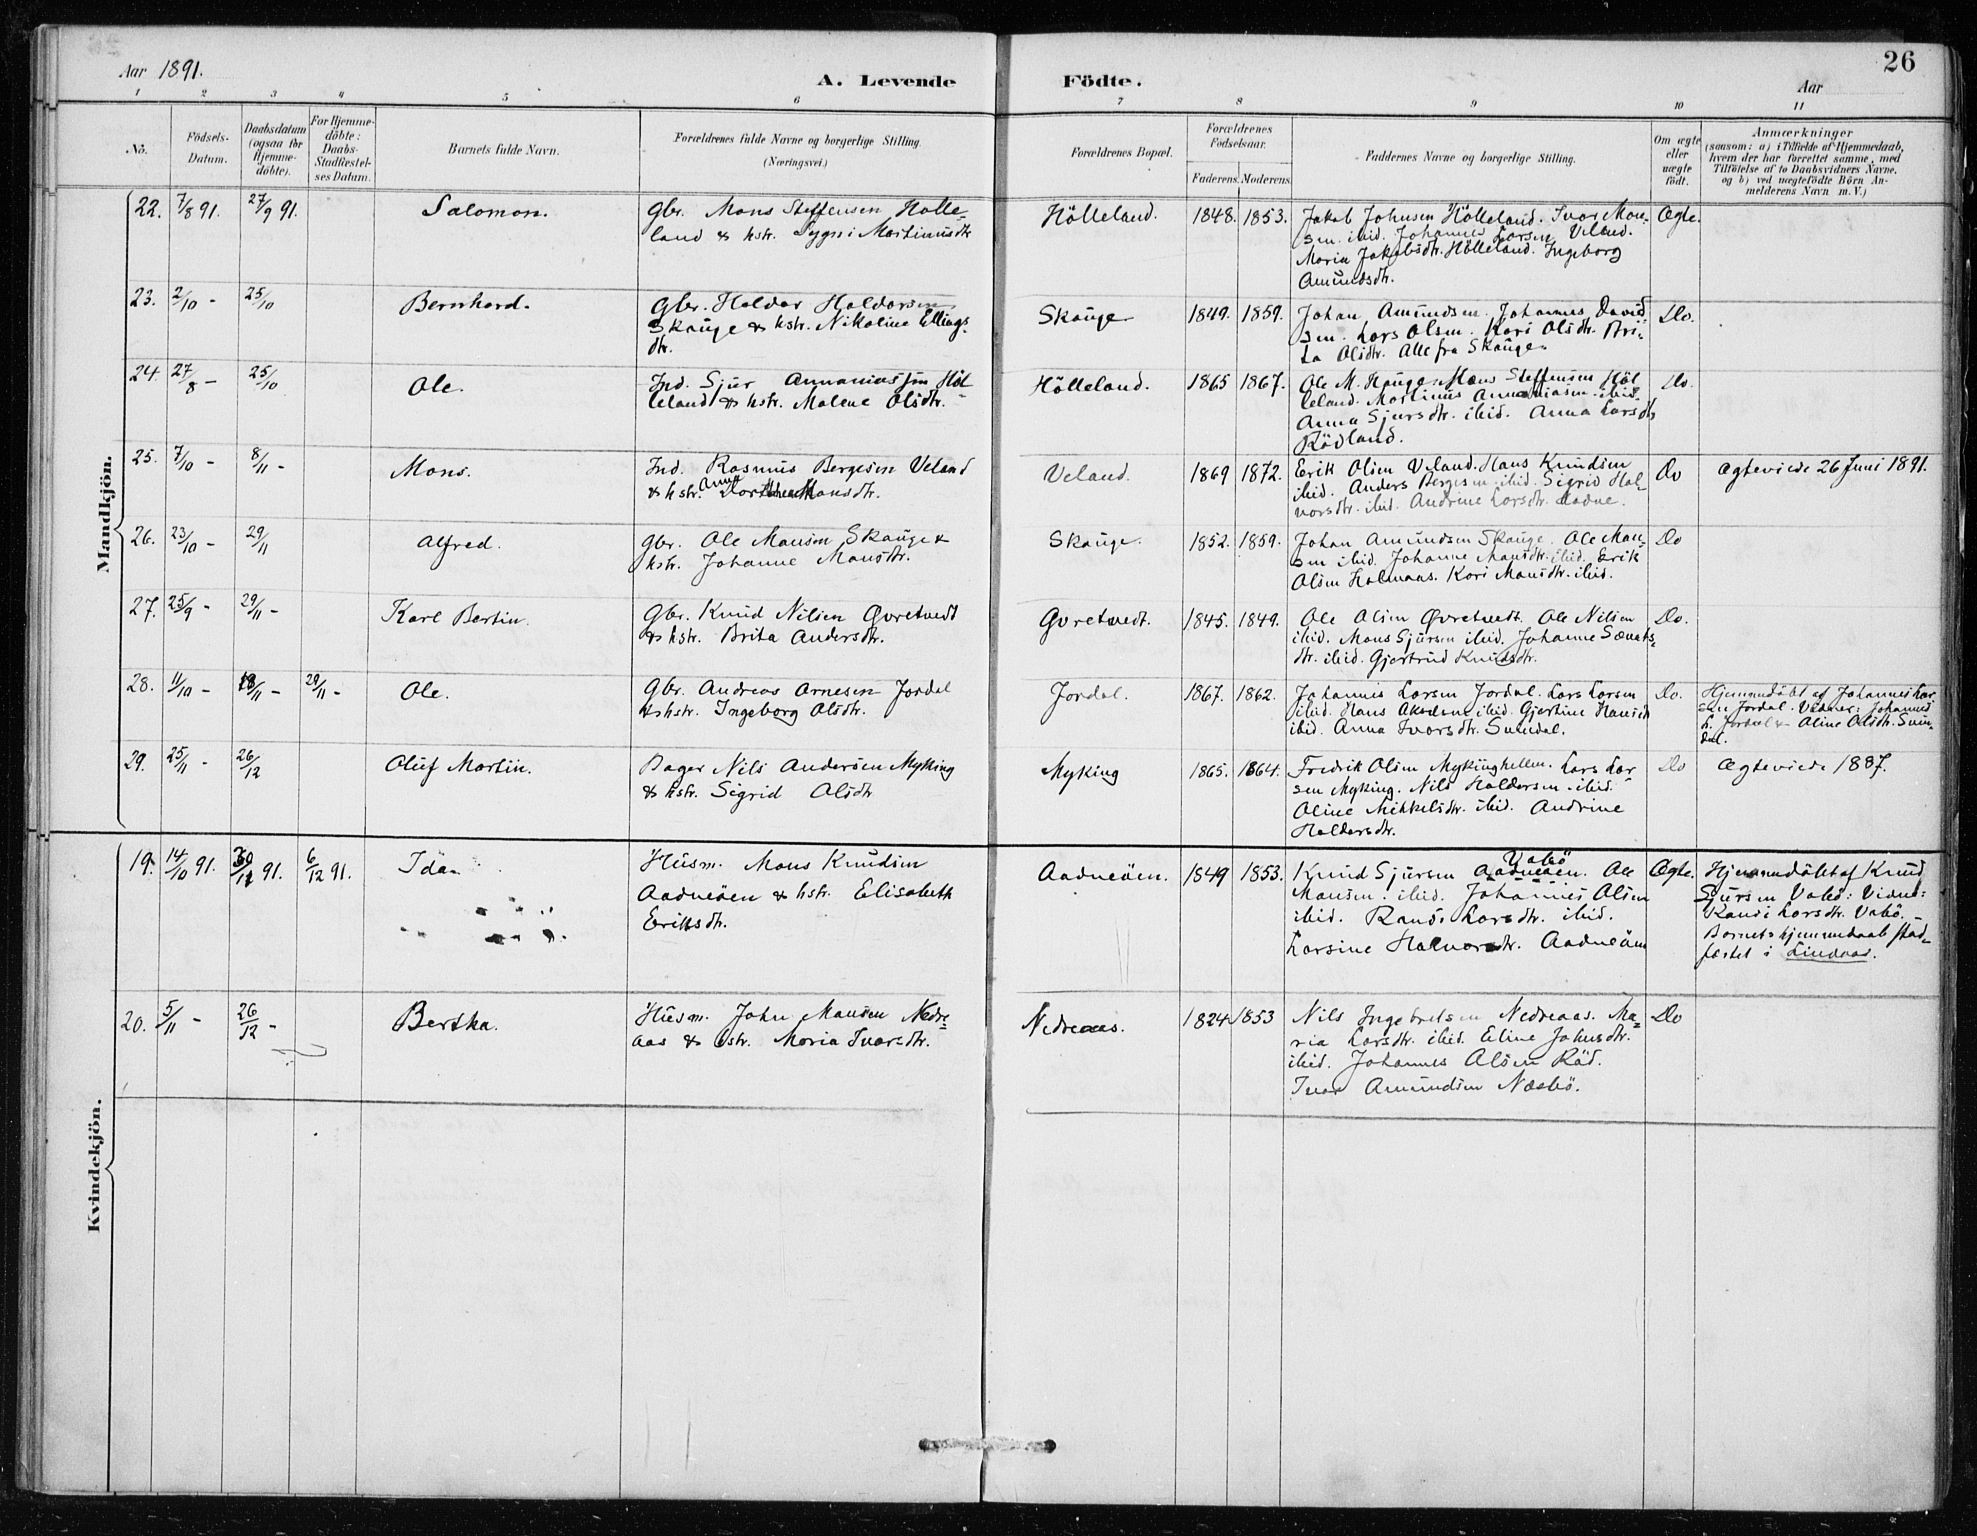 26
Aar 1891.
A. Levende Födte.
Aar
1 2 3 4 5 6 7 8 9 10 11
No.
Födsels-
Datum.
Daabsdatum
(ogsaa for
Hjemme-
döbte).
For Hjemme-
döbte:
Daabs-
Stadfæstel-
ses Datum.
Barnets fulde Navn.
Forældrenes fulde Navne og borgerlige Stilling.
(Næringsvei.)
Forældrenes Bopæl.
Forældrenes
Födselsaar.
Faderens. Moderens.
Faddernes Navne og borgerlige Stilling.
Om ægte
eller
uægte
födt.
Anmærkninger
(saasom: a) i Tilfælde af Hjemmedaab,
hvem der har forrettet samme, med
Tilföielse af to Daabsvidners Navne.
og b) ved uægtefödte Börn An-
melderens Navn m. V.)
Mandkjön.
22. 7/8 91. 27/9 91.
Salomon.
Gbr. Mons Steffensen Hölle-
land & hstr. Sygni Martinusdtr
Hölleland.
1848. 1853.
Jakob Johnsen Hölleland. Ivar Mon-
sen ibid. Johannes Larsen Veland.
Maria Jakobsdtr. Hölleland. Ingeborg
Amundsdtr.
Ægte.
23. 2/10 - 25/10
Bernhard.
Gbr. Haldor Haldorsen
Skauge & hstr. Nikoline Ellings-
dtr.
Skauge
1849. 1859.
Johan Amundsen. Johannes David-
sen. Lars Olsen. Kari Olsdtr. Bri-
ta Olsdtr. Alle fra Skauge.
Do.
24. 27/8 - 25/10
Ole.
Ind. Sjur Annaniassen Höl-
leland & hstr. Malene Olsdtr.
Hölleland.
1865 1867.
Ole M. Hauge. Mons Steffensen Höl-
leland. Martinus Annaniasen ibid.
Anna Sjursdtr. ibid. Anna Larsdtr
Rödland.
Do.
25. 7/10 - 8/11 -
Mons.
Ind. Rasmus Bergesen Veland
& hstr. Anna Dorthea Monsdtr.
Veland.
1869 1872.
Erik Olsen Veland. Hans Knudsen
ibid. Anders Bergesen ibid. Sigrid Hal-
vorsdtr. ibid. Andrine Larsdtr.
Do
Ægteviede 26 Juni 1891.
26. 23/10 - 29/11
Alfred.
Gbr. Ole Monsen Skauge &
hstr. Johanne Monsdtr.
Skauge.
1852. 1859.
Johan Amundsen Skauge. Ole Mon-
sen ibid. Johanne Monsdtr. ibid. Erik
Olsen Holmaas. Kari Monsdtr. ibid.
Do
27. 25/9 - 29/11 -
Karl Bertin.
Gbr. Knud Nilsen Øvretvedt
& hstr. Brita Andersdtr.
Øvretvedt.
1845. 1849.
Ole Olsen Øvretvedt. Ole Nilsen
ibid. Mons Sjursen ibid. Johanne
dtr. ibid. Gjertrud Knudsdtr.
Do.
28. 11/10 - 18/11 - 29/11 -
Ole.
Gbr. Andreas Arnesen Jordal
& hstr. Ingeborg Olsdtr.
Jordal.
1867. 1862.
Johannes Larsen Jordal. Lars Larsen
ibid. Hans Akselsen ibid. Gjertine Hansdtr
ibid. Anna Ivarsdtr.
Do.
Hjemmedöbt af Johannes Lar-
sen Jordal. Vidner: Johannes
L. Jordal & Oline Olsdtr. Sun-
dal.
29. 25/11 - 26/12
Oluf Martin.
Bager Nils Andersen Myking
& hstr. Sigrid Olsdtr
Myking
1865. 1864.
Fredrik Olsen Mykinghellen. Lars Lar-
sen Myking. Nils Haldorsen ibid.
Oline Mikkelsdtr. ibid. Andrine
Haldorsdtr.
Do
Ægteviede 1887.
Kvindekjön.
19. 14/10 91. 30/11 91. 6/12 91.
Ida.
Husm. Mons Knudsen
Aadneöen & hstr. Elisabeth
Eriksdtr.
Aadneöen.
1849 1853.
Vabö
Knud Sjursen Aadneöen. Ole
Monsen ibid. Johannes Olsen
ibid. Randi Larsdtr. ibid.
Larsine Halvorsdtr. Aadneöen
Ægte.
Hjemmedöbt af Knud
Sjursen Vabö: Vidne:
Randi Larsdtr. Vabö. -
Barnets hjemmedaab stad-
fæstet i Lindaas.
20. 5/11 - 26/12 -
Bertha.
Husm. John Monsen Nedre-
aas & hstr. Maria Ivarsdtr.
Nedreaas.
1824 1853
Nils Ingebretsen Nedreaas. Ma-
ria Larsdtr. ibid. Eline Johnsdtr.
ibid. Johannes Olsen Röd.
Ivar Amundsen Næsbö.
Do